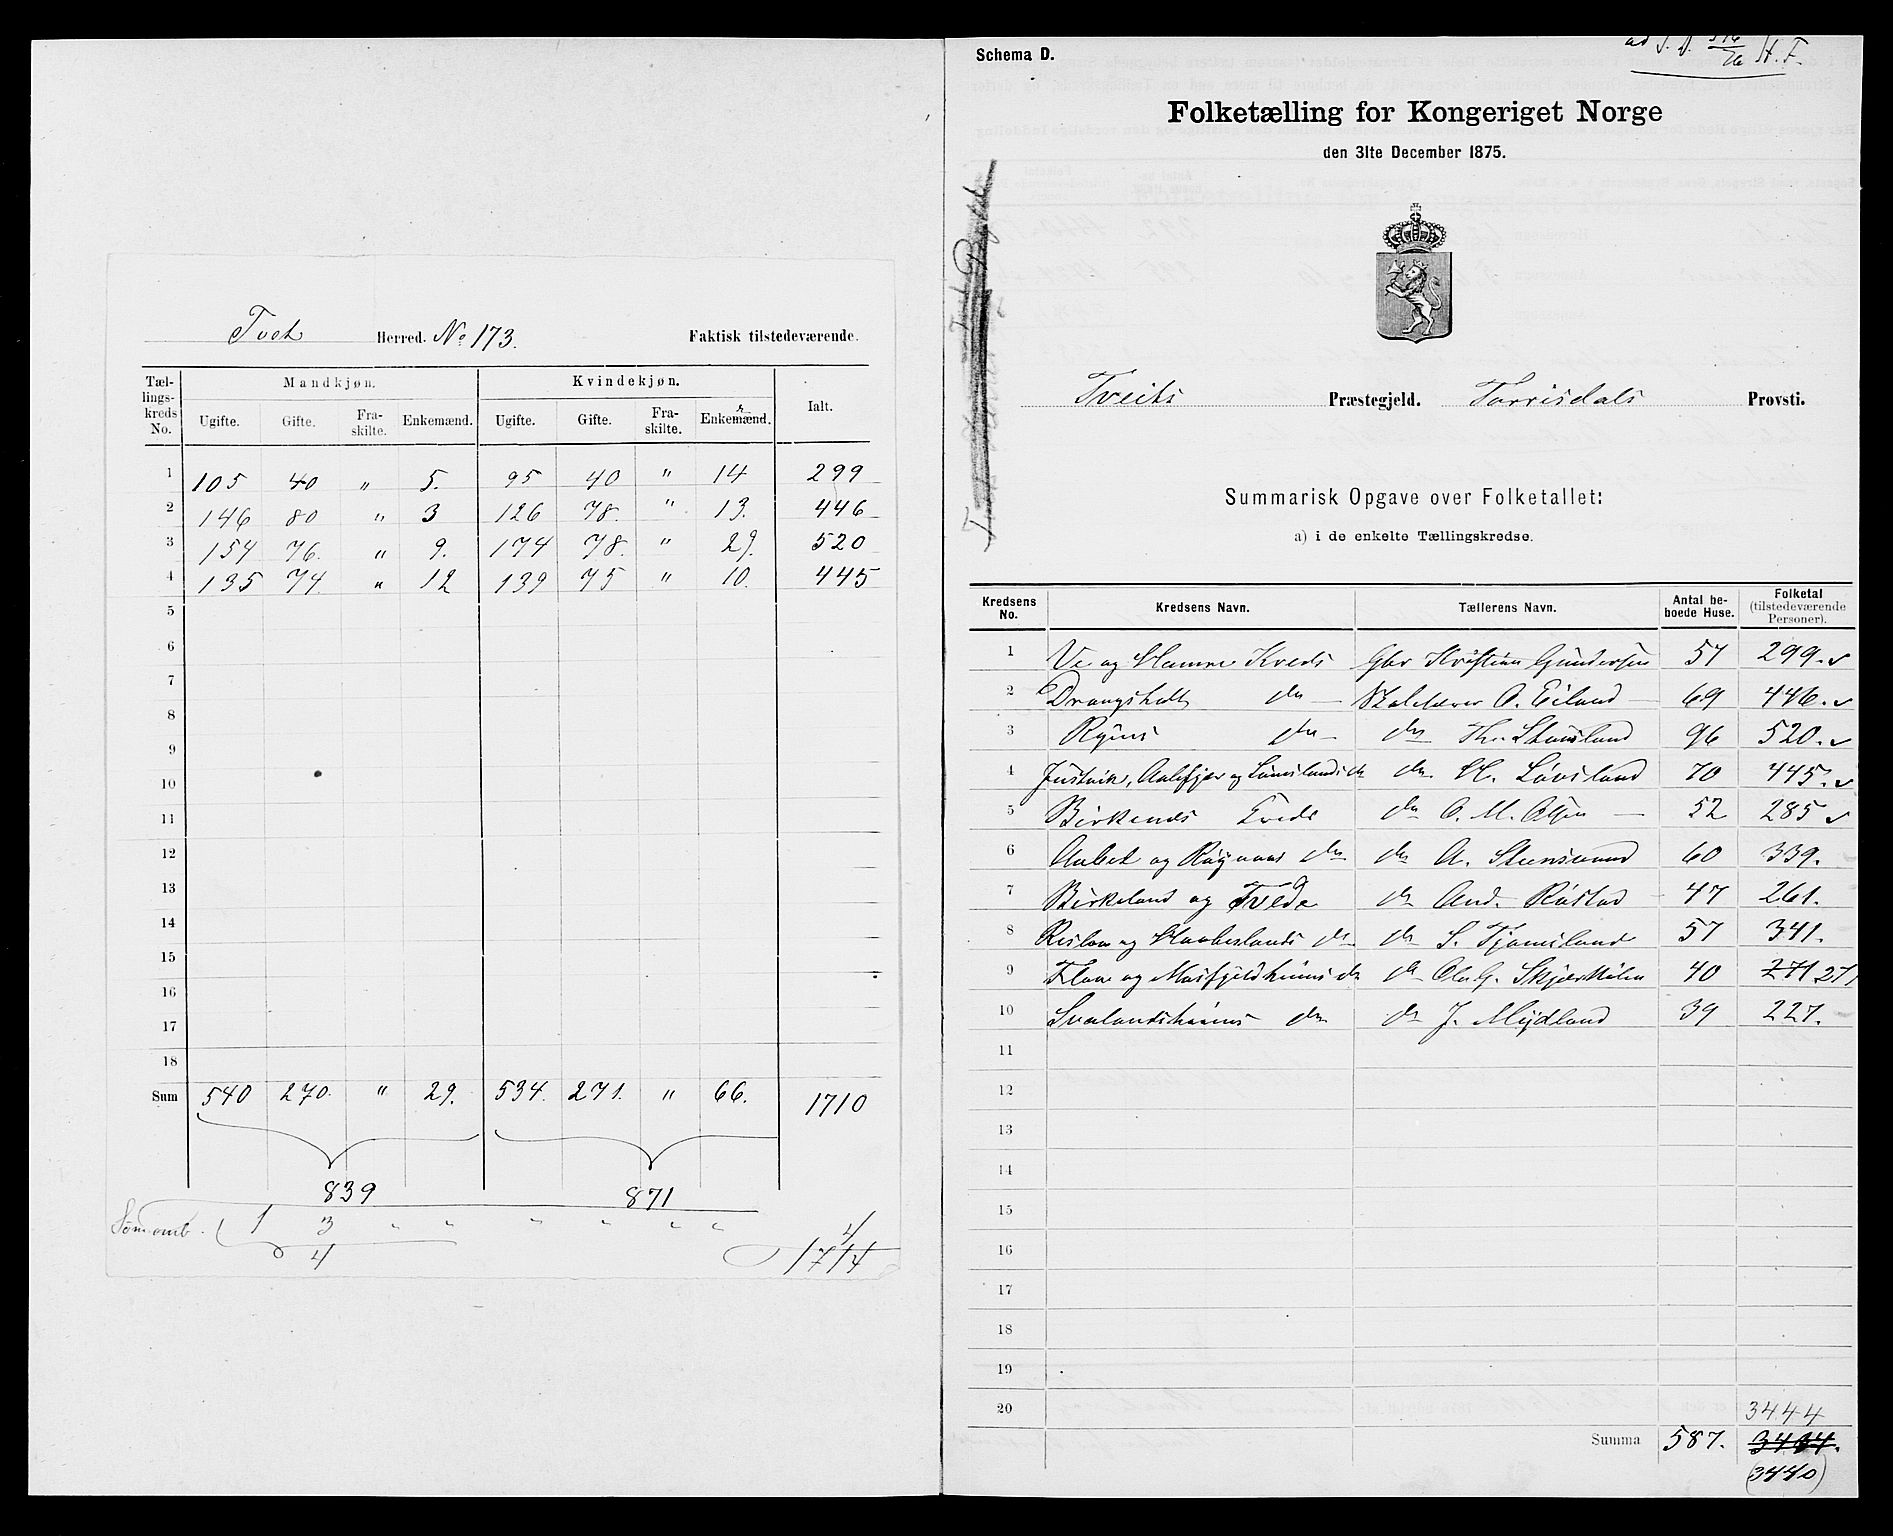 Tvet Herred. No 173. Faktisk tilstedeværende.
Tæl-lings-kreds No. Mandkjøn. Kvindekjøn. Ialt.
Ugifte. Gifte. Fra-skilte. Enkemænd. Ugifte. Gifte. Fra-skilte. Enkemænd.
1 105 40 " 5. 95 40 " 14 299
2 146 80 " 3 126 78. " 13. 446
3 154 76. " 9. 174 78. " 29. 520
4 135 74. " 12 139 75 " 10. 445
5
6
7
8
9
10
11
12
13
14
15
16
17
18
Sum 540 270. " 29. 534. 271. " 66. 1710
839 871
1 3 " " " " " " 4
4 1714
Schema D.
H. F.
Folketælling for Kongeriget Norge
den 31te December 1875.
Tveits Præstegjeld. Torrisdals Provsti.
Summarisk Opgave over Folketallet:
a) i de enkelte Tællingskredse.
Kredsens No. Kredsens Navn. Tællerens Navn. Antal be-boede Huse. Folketal (tilstedeværende Personer).
1 Ve og Hamre Kreds Gbr Kristian Gundersen 57 299.
2 Drangsholt do — O. Eiland — 69 446.
3 Ryens do do Th. Stousland 96 520.
4 Justvik, Aalefjær og do H. Løvsland 70 445.
5 Birkenes Kreds do O. M. Olsen — 52 285
6 og do do A. 60 339.
7 Birkeland og Tvede do And. Røstad 47 261.
8 og Haabeslands do do S. Tjomsland 57 341.
9 Flaa og do do Ole G. 40 271 271
10 Svalandsheiens do do J. Mydland 39 227.
11
12
13
14
15
16
17
18
19
20 3444
Summa 587. 3434.
(3440)